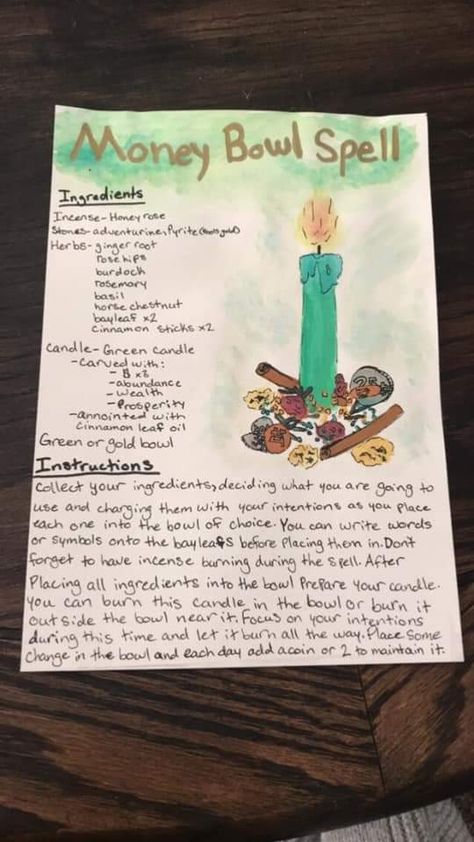 Money Bowl Spell
Ingredients
Incense- Honey rose
Stones- adventurine, Pyrite (fools gold)
Herbs- ginger root
rose hips
burdock
rosemary
basil
horse chestnut
bayleaf x2
cinnamon sticks x2
Candle- Green candle
- Carved with:
- $ x3
- abundance
- wealth
- Prosperity
- annointed with
cinnamon leaf oil
Green or gold bowl
Instructions
Collect your ingredients, deciding what you are going to
use and charging them with your intentions as you place
each one into the bowl of choice. You can write words
or symbols onto the bayleafs before Placing them in. Dont
forget to have incense burning during the spell. After
Placing all ingredients into the bowl Prepare your candle.
You can burn this candle in the bowl or burn it
out side the bowl near it. Focus on your intentions
during this time and let it burn all the way. Place Some
change in the bowl and each day add a coin or 2 to maintain it.
25¢